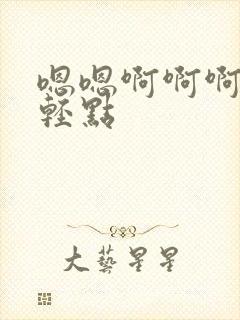 嗯嗯啊啊啊
輕點
大藝星星